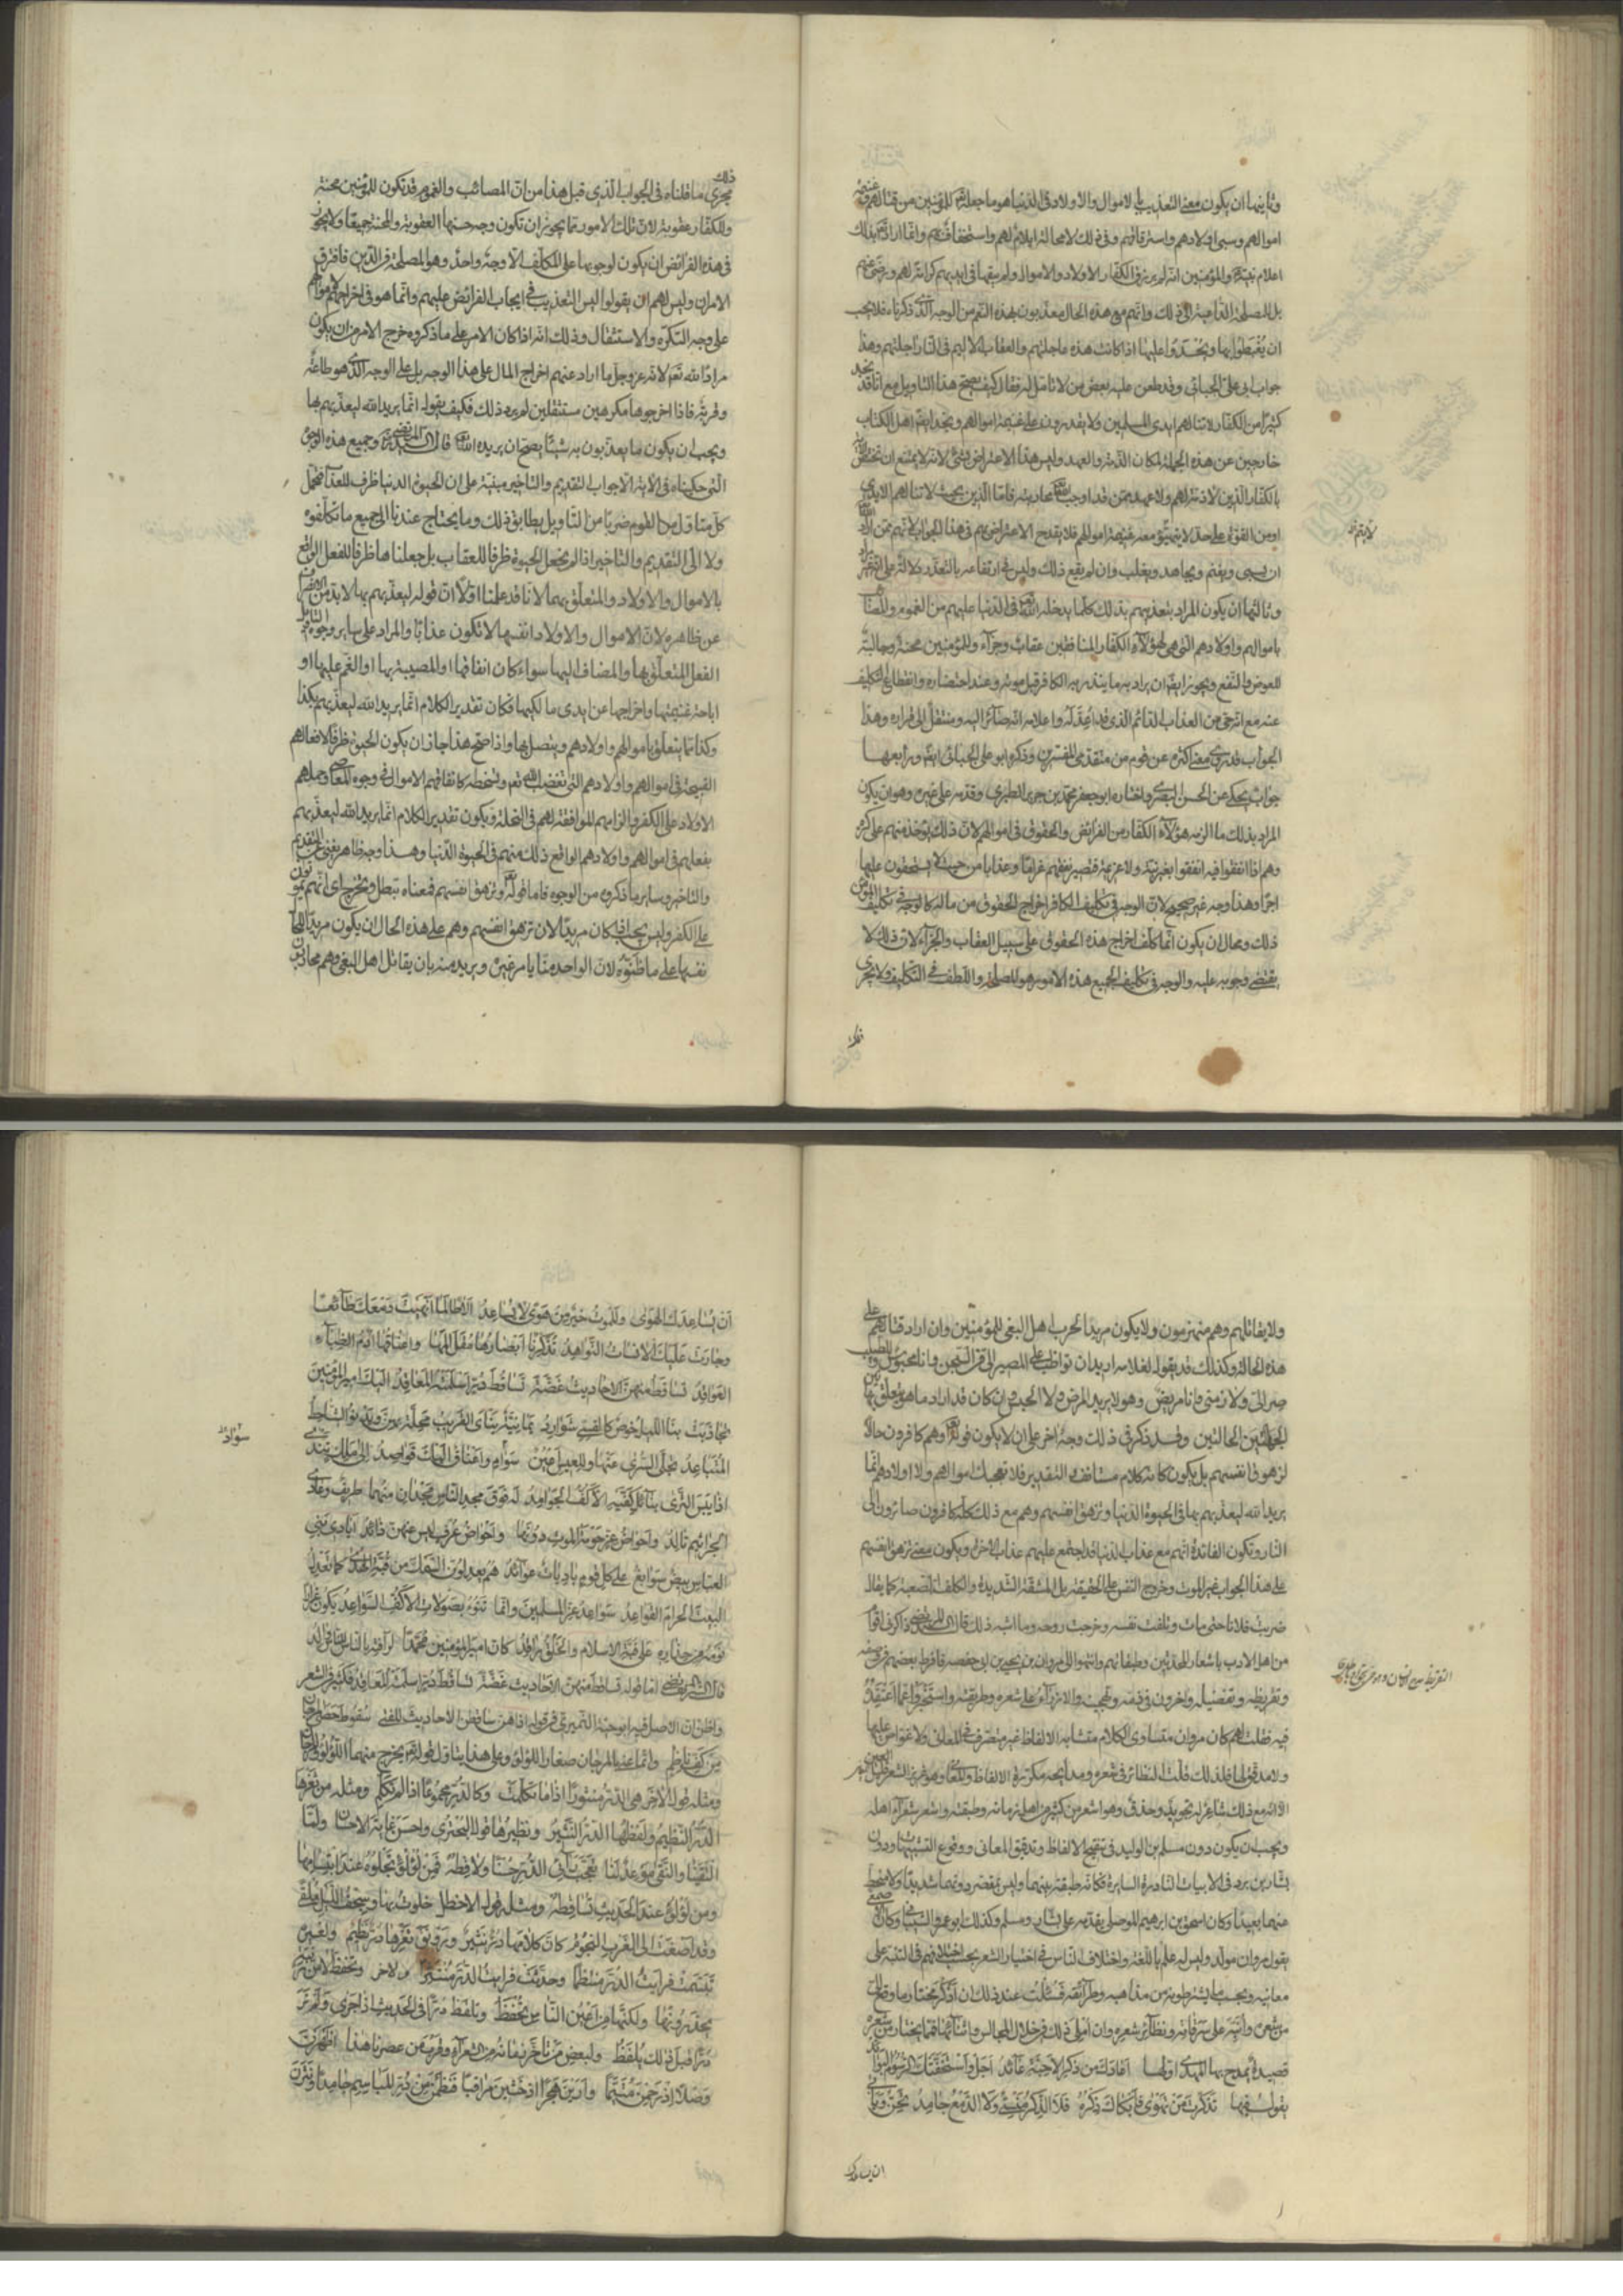 وثانيها ان يكون معنى التعذيب بالاموال والاولاد فى الدنيا هو ما جعله للمؤمنين من قتالهم وغنيمة
اموالهم وسبى اولادهم واسترقاقهم وفى ذلك لا محالة ايلام لهم واستخفاف بهم وانما اراد تع بذلك
اعلام نبيه والمؤمنين انه لم يرزق الكفار الاولاد والاموال ولم يبقها فى ايديهم كرامة لهم ورضى عنهم
بل للمصلحة الداعية الى ذلك وانهم مع هذه الحال معذبون بهذه النعم من الوجه الذى ذكرناه فلا يجب
ان يغبطوا بها ويحسدوا عليها اذا كانت هذه عاجلتهم والعقاب الاليم فى النار آجلتهم وهذا
جواب ابى على الجبائى وقد طعن عليه بعض من لا تامل له فقال كيف يصح هذا التاويل مع انا قد نجد
كثيرا من الكفار لا تنالهم ايدى المسلمين ولا يقدرون على غنيمة اموالهم ونجد ايضا اهل الكتاب
خارجين عن هذه الجملة لمكان الذمة والعهد وليس هذا الاعتراض بشئ لانه لا يمتنع ان تختص الاية
بالكفار الذين لا ذمة لهم ولا عهد ممن قد اوجب الله محاربته فاما الذين بحيث لا تنالهم الايدى
او من القوة على حد لا يتهيؤ معه غنيمة اموالهم فلا يقدح الاعتراض بهم فى هذا الجواب لانهم ممن اراد الله
ان يسبى ويغنم ويجاهد ويغلب وان لم يقع ذلك وليس فى ارتفاعه بالتعذر دلالة على انه غير مراد
وثالثها ان يكون المراد بتعذيبهم بذلك كلما يدخله الله فى الدنيا عليهم من الغموم والمصائب
باموالهم واولادهم التى هى لهؤلاء الكفار المنافقين عقاب وجزاء وللمؤمنين محنة وجالبة
للعوض والنفع ويجوز ايضا ان يراد به ما ينذر به الكافر قبل موته وعند احتضاره وانقطاع التكليف
عنه مع انه حى من العذاب الدائم الذى قد اعد له واعلامه انه صائر اليه ومنتقل الى قراره وهذا
الجواب قد روى معنى اكثره عن قوم من متقدمى المفسرين وذكره ابو على الجبائى ايضا ورابعها
جواب يحكى عن الحسن البصرى واختاره ابو جعفر محمد بن جرير الطبرى وقدمه على غيره وهو ان يكون
المراد بذلك ما الزمه هؤلاء الكفار من الفرائض والحقوق فى اموالهم لان ذلك يؤخذ منهم على كره
وهم اذا انفقوا فيه انفقوا بغير نية ولا عزيمة فتصير نفقتهم غراما وعذابا من حيث لا يستحقون عليها
اجرا وهذا وجه غير صحيح لان الوجه فى تكليف الكافر اخراج الحقوق من ماله كالوجه فى تكليف المؤمن
ذلك ومحال ان يكون انما كلف اخراج هذه الحقوق على سبيل العقاب والجزاء لان ذلك لا
يقتضى وجوبه عليه والوجه فى تكليف الجميع هذه الامور هو المصلحة واللطف فى التكليف ولا يجرى
ذلك
مجرى ما قلناه فى الجواب الذى قبل هذا من ان المصائب والغموم قد تكون للمؤمنين محنة
وللكفار عقوبة لان تلك الامور مما يجوز ان تكون وجه حسنها العقوبة والمحنة جميعا ولا يجوز
فى هذه الفرائض ان يكون لوجوبها على المكلف الا وجه واحد وهو المصلحة فى الدين فافترق
الامران وليس لهم ان يقولوا ليس التعذيب فى ايجاب الفرائض عليهم وانما هو فى اخراجهم لاموالهم
على وجه التكره والاستثقال وذلك انه اذا كان الامر على ما ذكروه خرج الامر من ان يكون
مرادا لله تع لانه عز وجل ما اراد عنهم اخراج المال على هذا الوجه بل على الوجه الذى هو طاعة
وقربة فاذا اخرجوها مكرهين مستثقلين لم يرد ذلك فكيف يقول انما يريد الله ليعذبهم بها
ويجب ان يكون ما يعذبون به شيئا يصح ان يريده الله قال السيد المرتضى وجميع هذه الوجوه
التى حكيناه فى الاية الا جواب التقديم والتاخير مبنية على ان الحيوة الدنيا ظرف للعذاب فتحمل
كل متاول من القوم ضربا من التاويل يطابق ذلك وما يحتاج عندنا الى جميع ما تكلفوه
ولا الى التقديم والتاخير اذا لم نجعل الحيوة ظرفا للعقاب بل جعلناها ظرفا للفعل الواقع
بالاموال والاولاد والمتعلق بهما لانا قد علمنا اولا ان قوله ليعذبهم بها لا بد من الانصراف
عن ظاهره لان الاموال والاولاد انفسها لا تكون عذابا والمراد على سائر وجوه التاويل
الفعل المتعلق بها والمضاف اليها سواء كان انفاقها او المصيبة بها او الغم عليها او
اباحة غنيمتها واخراجها عن ايدى مالكيها فكان تقدير الكلام انما يريد الله ليعذبهم بكذا
وكذا مما يتعلق باموالهم واولادهم ويتصل بها واذا صح هذا جاز ان يكون الحيوة ظرفا لافعالهم
القبيحة فى اموالهم واولادهم التى تغضب الله تع وتسخطه كانفاقهم الاموال فى وجوه المعاصى وحملهم
الاولاد على الكفر والزامهم الموافقة لهم فى النحلة ويكون تقدير الكلام انما يريد الله ليعذبهم
بفعلهم فى اموالهم واولادهم الواقع ذلك منهم فى الحيوة الدنيا وهذا وجه ظاهر يغنى عن التقديم
والتاخير وساير ما ذكروه من الوجوه فاما قوله تع وتزهق انفسهم فمعناه تبطل وتخرج اى انهم يموتون
على الكفر وليس يجب اذا كان مريدا لان تزهق انفسهم وهم على هذه الحال ان يكون مريدا للحال
نفسها على ما ظنوه لان الواحد منا يامر غيره ويريد منه بان يقاتل اهل البغى وهم محاربون
ولا يقاتلهم وهم منهزمون ولا يكون مريدا لحرب اهل البغى للمؤمنين وان اراد قتالهم على
هذه الحالة وكذلك قد يقول لغلامه اريد ان تواظب على المصير الى فى السجن وانا محبوس وللطبيب
صر الى ولازمنى وانا مريض وهو لا يريد المرض ولا الحبس وان كان قد اراد ما هو متعلق بها
لين الحالتين وقد ذكر فى ذلك وجه اخر على ان لا يكون قوله وهم كافرون حالا
لزهوق انفسهم بل يكون كانه كلام مستانف والتقدير فلا تعجبك اموالهم ولا اولادهم انما
يريد الله ليعذبهم بها فى الحيوة الدنيا وتزهق انفسهم وهم مع ذلك كله كافرون صائرون الى
النار وتكون الفائدة انهم مع عذاب الدنيا قد اجتمع عليهم عذاب الاخرة ويكون معنى تزهق انفسهم
على هذا الجواب غير الموت وخروج النفس على الحقيقة بل المشقة الشديدة والكلف الصعبة كما يقال
ضربت فلانا حتى مات وتلفت نفسه وخرجت روحه وما اشبه ذلك قال المرتضى ذاكرنى قوم
من اهل الادب باشعار المحدثين وطبقاتهم وانتهوا الى مروان بن يحيى بن ابى حفصه فافرط بعضهم فى وصفه
وتقريظه وتفضيله واخرون فى ذمه وتهجينه والازراء على شعره وطريقته واستخبروا عما اعتقده
فيه فقلت لهم كان مروان متساوى الكلام متشابه الالفاظ غير متصرف فى المعانى ولا غواص عليها
ولا مدقق لها فلذلك قلت النظائر فى شعره ومدائحه مكررة الالفاظ والمعانى وهو غزير الشعر قليل المعنى
الا انه مع ذلك شاعر له تجويد وحذق وهو اشعر من كثير من اهل زمانه وطبقته واشعر شعراء اهله
ويجب ان يكون دون مسلم بن الوليد فى تنقيح الالفاظ وتدقيق المعانى ووقوع التشبيهات ودون
بشار بن برد فى الابيات النادرة السائرة فكانه طبقة بينهما وليس بمقصر دونهما شديدا ولا منحط
عنهما بعيدا وكان اسحق بن ابرهيم الموصلى يقدمه على بشار ومسلم وكذلك ابو عمرو الشيبانى وكان الاصمعى
يقول مروان مولد وليس له علم باللغة واختلاف الناس فى اختيار الشعر بحسب اختلافهم فى التنبه على
معانيه وبحسب ما يشترطونه من مذاهبه وطرائقه فسئلت عند ذلك ان اذكر مختار ما وقع الى
من شعره وانبه على سرقاته ونظائر شعره وان املى ذلك فى خلال المجالس واثنائها فمما يختار من شعره
قصيدة يمدح بها المهدى اولها اعادك من ذكر الاحبة عائد اجل واستخفتك الرسوم البوائد
يقول فيها تذكرت من تهوى فابكاك ذكره فلا الذكر منسى ولا الدمع جامد تحن ويأبى
ان يساعدك
ان يساعدك الهوى وللموت خير من هوى لا يساعد الا طالما انهيت دمعك طائعا
وجارت عليك الانسات النواهد تذكرنا ابصارها مقل المها واعناقها ادم الظباء
العواقد تساقط منهن الاحاديث غضة تساقط در اسلمته المعاقد اليك امير المؤمنين
تجاذبت بنا الليل خوص كالقسى شوارد يمانية ينأى القريب محلة بهن ويدنو الشاحط
المتباعد تجلى السرى عنها وللعيس اعين سوام واعناق اليك قواصد الى ملك تندى
اذا يبس الثرى بنائل كفيه الاكف الجوامد له فوق مجد الناس مجدان منهما طريف وعادى
الجراثيم تالد واحواض عز حومة الموت دونها واحواض عرف ليس عنهن ذائد ايادى بنى
العباس بيض سوابغ على كل قوم باديات عوائد هم يعدلون السمك من قبة الهدى كما تعدل
البيت الحرام القواعد سواعد عز المسلمين وانما تنوء بصولات الاكف السواعد يكون غرارا
نومه من حذاره على قبة الاسلام والخلق راقد كان امير المؤمنين محمدا لرأفته بالناس للناس والد
قال المرتضى اما قوله تساقط منهن الاحاديث غضة تساقط در اسلمته المعاقد فكثير فى الشعر
واظن ان الاصل فيه ابو حية النميرى فى قوله اذا هن ساقطن الاحاديث للفتى سقوط حصى المرجان
من كف ناظم وانما عنى بالمرجان صغار اللؤلؤ وعلى هذا يتاول قوله تع يخرج منهما اللؤلؤ والمرجان
ومثله قول الاخر هى الدر منثورا اذا ما تكلمت وكالدر مجموعا اذا لم تكلم ومثله من ثغرها
الدر النظيم ولفظها الدر النثير ونظيرها قول البحترى واحسن غاية الاحسان ولما
التقينا والنقا موعد لنا تعجب رائى الدر حسنا ولاقطه فمن لؤلؤ تجلوه عند ابتسامها
ومن لؤلؤ عند الحديث تساقطه ومثله قول الاخطل خلوت بها وسجف الليل ملقى
وقد اصغت الى الغرب النجوم كان كلامها در نثير ورونق ثغرها در نظيم ولغيره
تبسمت فرايت الدر منتظما وحدثت فرايت الدر منتثرا ولاخر وتحفظ لا من ريبة
يحذرونها ولكنها من اعين الناس تحفظ وتلفظ درا فى الحديث اذا جرى ولم نر
درا قبل ذلك يلفظ ولبعض من تاخر زمانه من الشعراء وقرب من عصرنا هذا اظهرت
وصلا اذ رحمن متيما وارين هجرا اذ خشين مراقبا فنظمن من در المباسم جامدا ونثرن